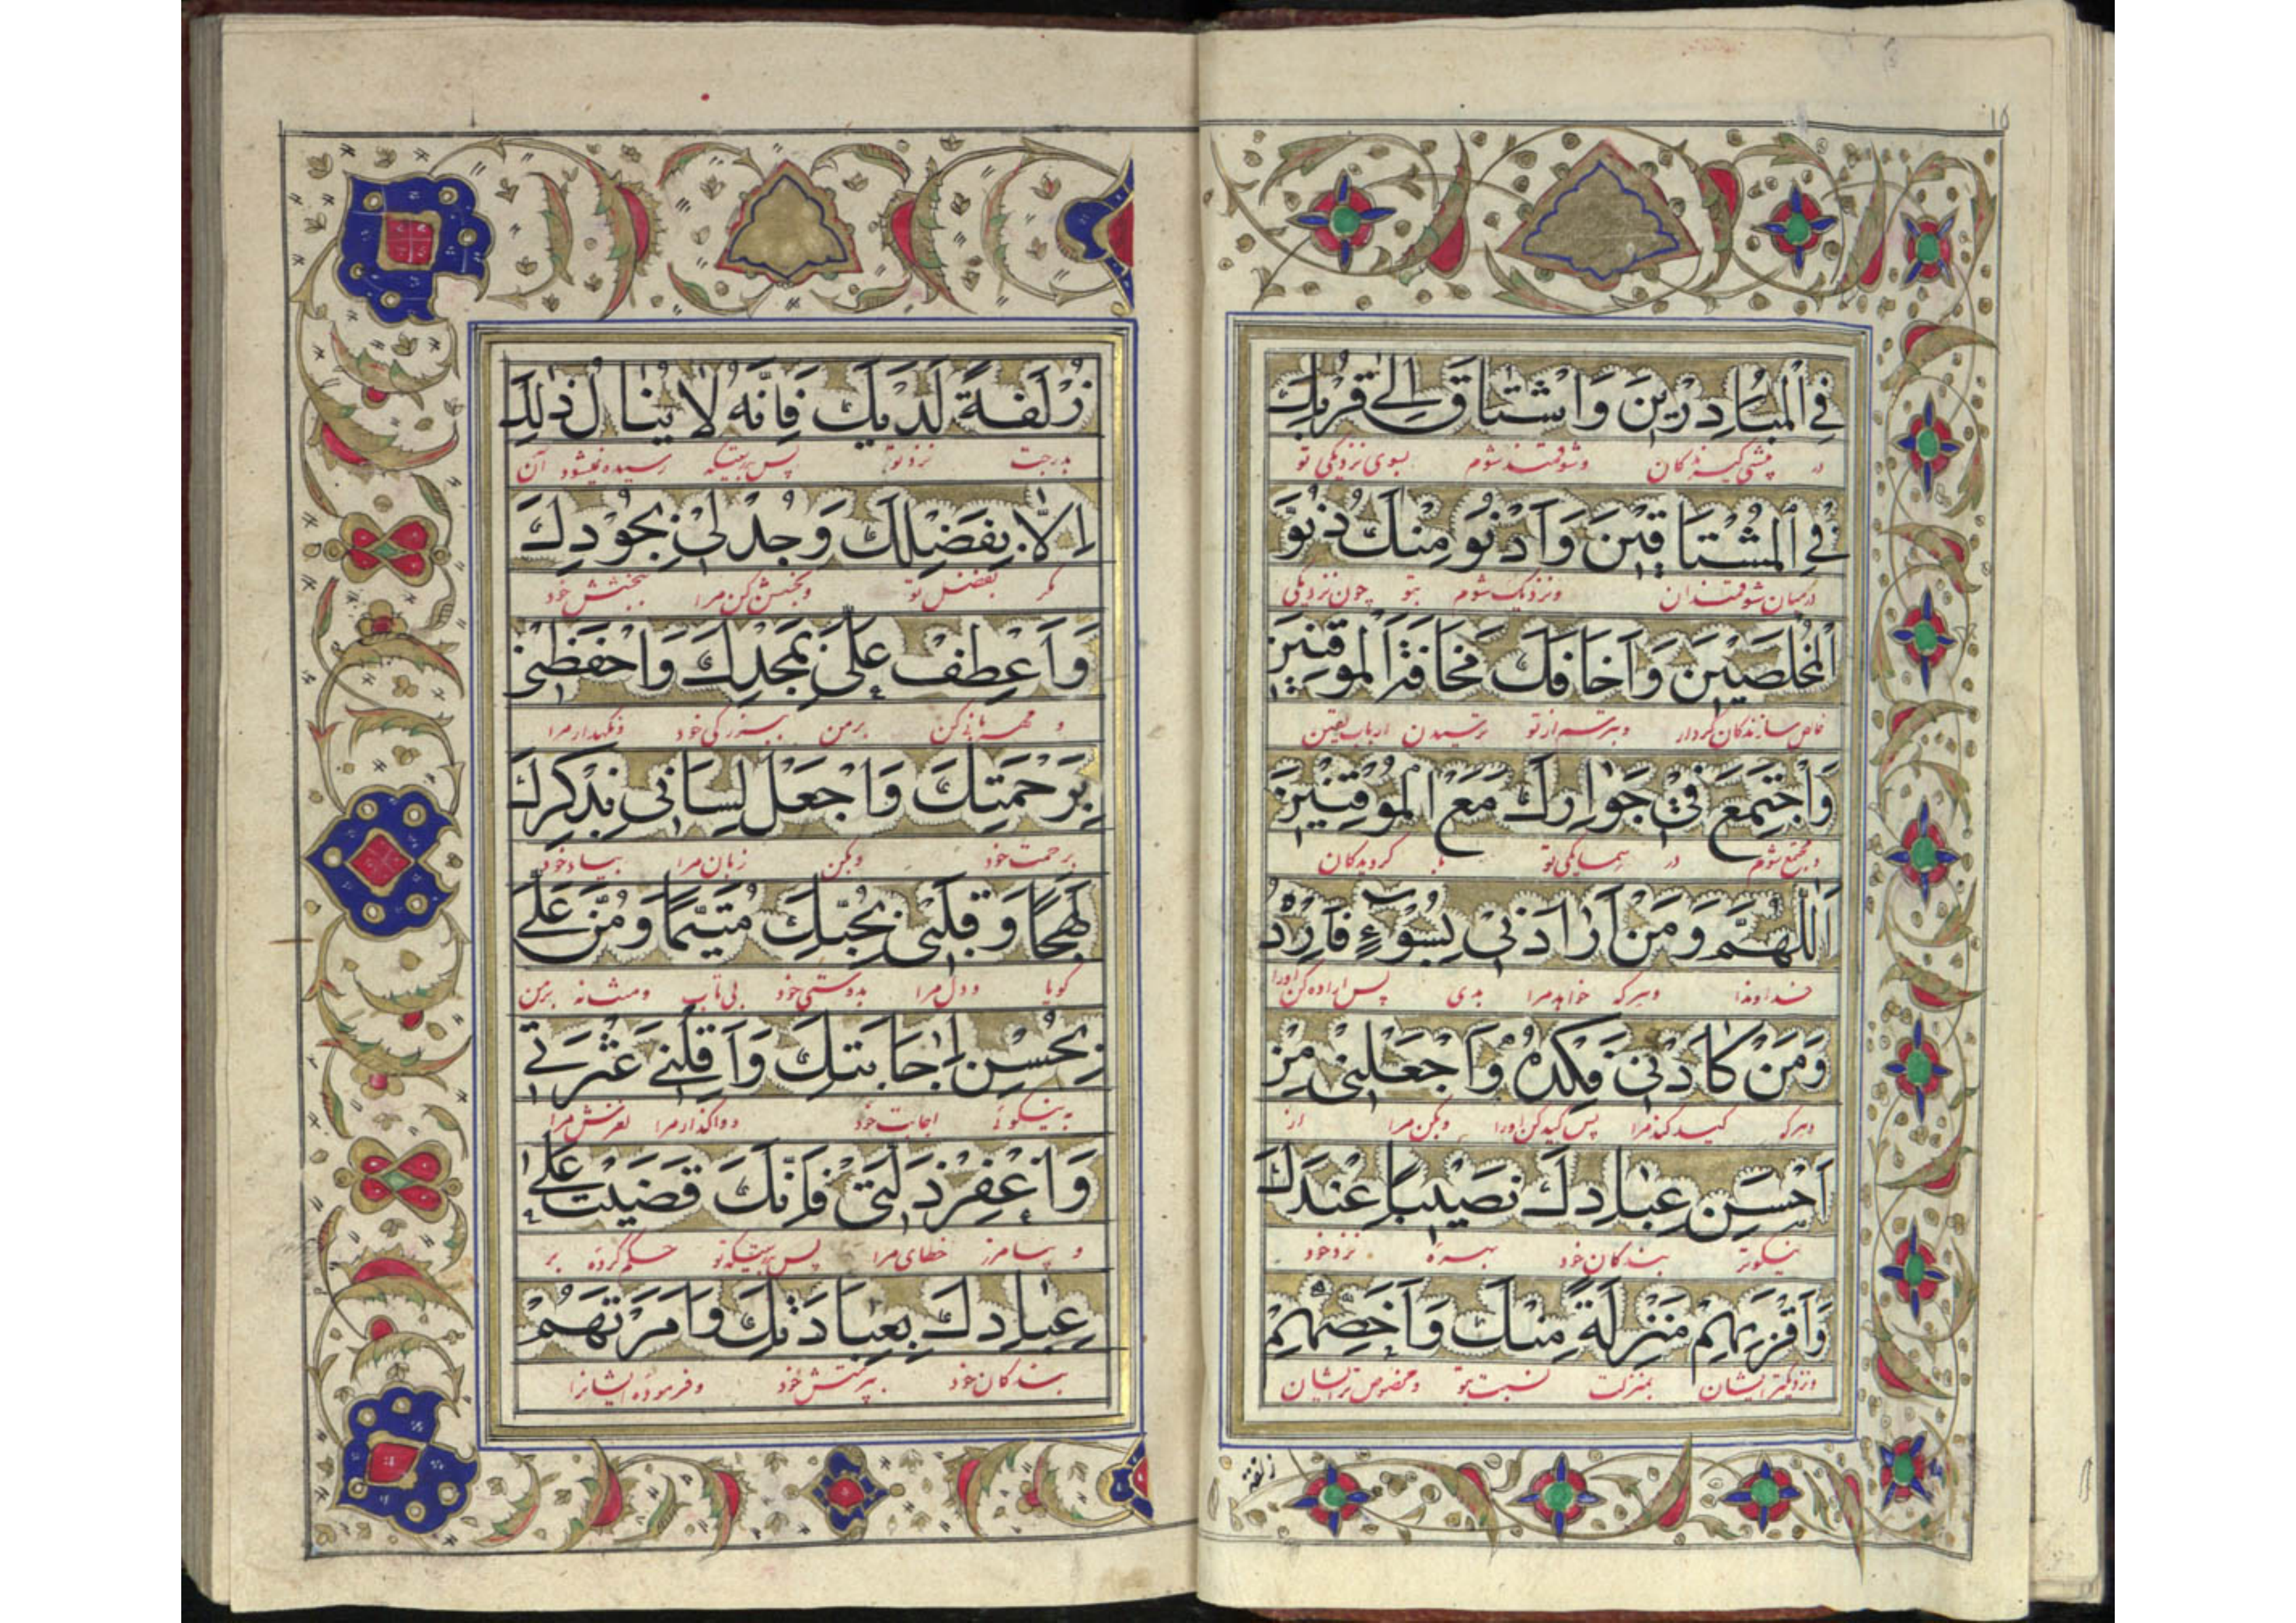 فِي الْمُبَادِرِينَ وَاَشْتَاقَ اِلٰى قُرْبِكَ
در پیشی گیرندگان وشوقمند شوم بسوی نزدیکی تو
فِي الْمُشْتَاقِينَ وَاَدْنُوَ مِنْكَ دُنُوَّ
درمیان شوقمندان ونزدیک شوم بتو چون نزدیکی
الْمُخْلَصِينَ وَاَخَافَكَ مَخَافَةَ الْمُوقِنِينَ
خاص سازندگان کردار وبترسم از تو ترسیدن ارباب یقین
وَاَجْتَمِعَ فِي جَوَارِكَ مَعَ الْمُؤْقِنِينَ
ومجتمع شوم در همسایگی تو با گرویدگان
اَللّٰهُمَّ وَمَنْ اَرَادَنِي بِسُوۤءٍ فَاَرِدْهُ
خداوندا وهرکه خواهد مرا بدی پس اراده کن اورا
وَمَنْ كَادَنِي فَكِدْهُ وَاجْعَلْنِي مِنْ
وهرکه کید کند مرا پس کید کن اورا وبکن مرا از
اَحْسَنِ عِبَادِكَ نَصِيبًا عِنْدَكَ
نیکوتر بندگان خود بهره نزد خود
وَاَقْرَبِهِمْ مَنْزِلَةً مِنْكَ وَاَخَصِّهِمْ
ونزدیکتر ایشان بمنزلت نسبت بتو ومخصوص تر ایشان
زلفة
زُلْفَةً لَدَيْكَ فَاِنَّهُ لَا يُنَالُ ذٰلِكَ
بدرجت نزد تو پس بدرستیکه رسیده نمیشود آن
اِلَّا بِفَضْلِكَ وَجُدْ لِي بِجُودِكَ
مگر بفضل تو وبخشش کن مرا ببخشش خود
وَاَعْطِفْ عَلَيَّ بِمَجْدِكَ وَاحْفَظْنِي
و مهربانی کن برمن ببزرگی خود ونگهدار مرا
بِرَحْمَتِكَ وَاجْعَلْ لِسَانِي بِذِكْرِكَ
برحمت خود وبکن زبان مرا بیاد خود
لَهِجًا وَقَلْبِي بِحُبِّكَ مُتَيَّمًا وَمُنَّ عَلَيَّ
گویا ودل مرا بدوستی خود بی تاب ومنت نه برمن
بِحُسْنِ اِجَابَتِكَ وَاَقِلْنِي عَثْرَتِي
به نیکوئی اجابت خود وواگذار مرا لغزش مرا
وَاغْفِرْ ذَلَّتِي فَاِنَّكَ قَضَيْتَ عَلٰى
و بیامرز خطای مرا پس بدرستیکه تو حکم کرده بر
عِبَادِكَ بِعِبَادَتِكَ وَاَمَرْتَهُمْ
بندگان خود بپرستش خود وفرموده ایشانرا